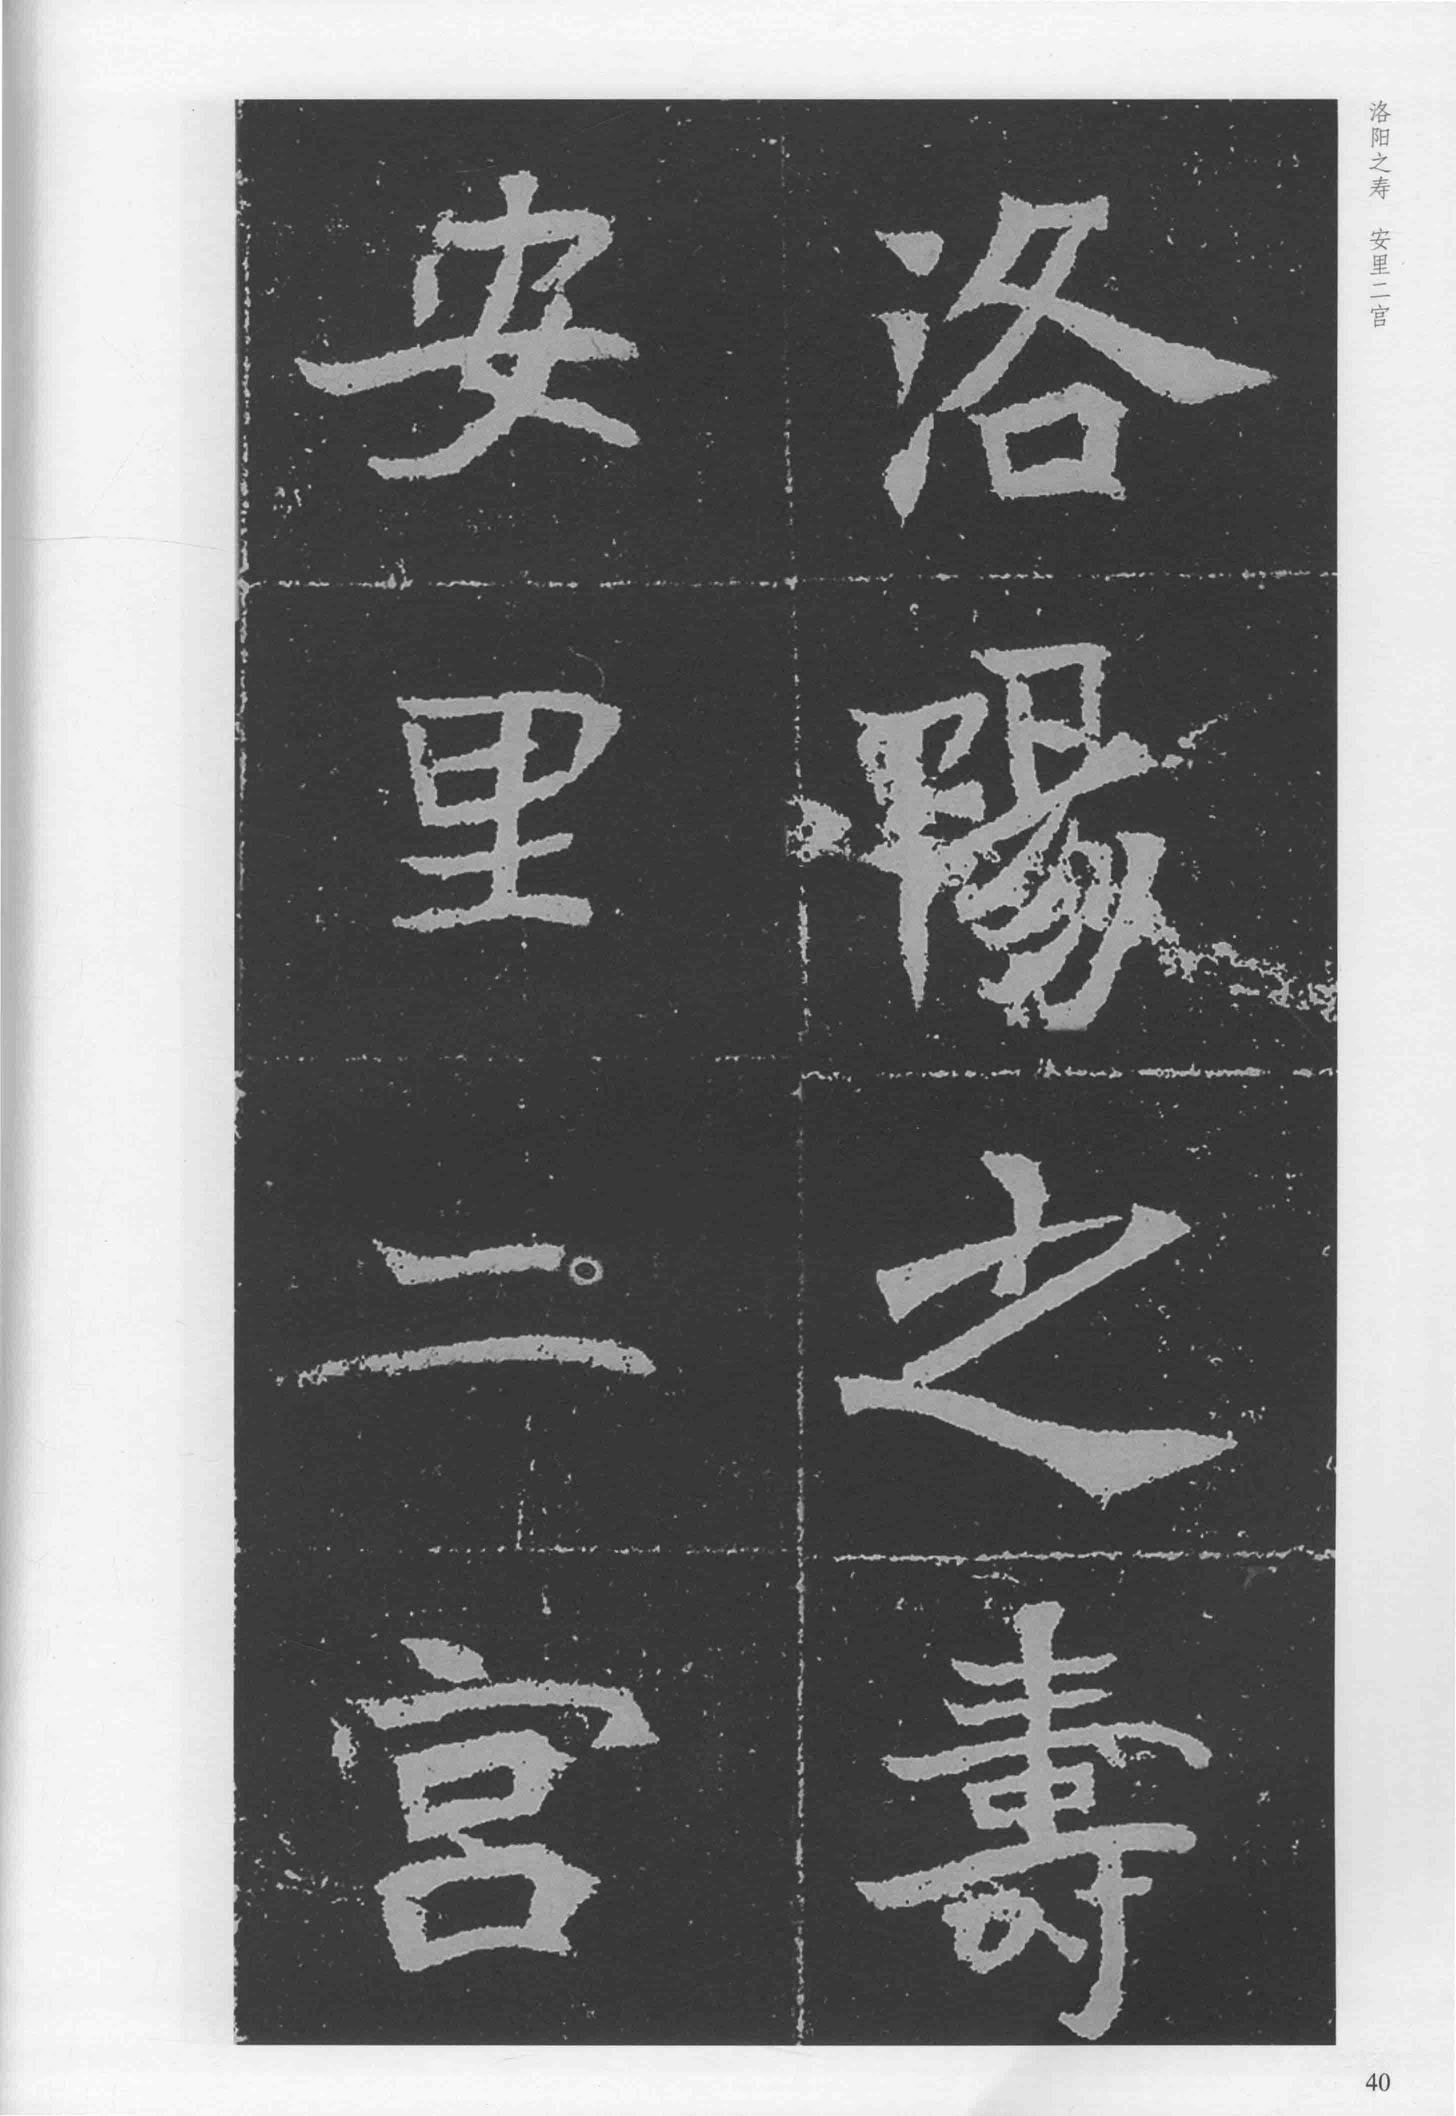 洛陽之壽
安里二宮
洛阳之寿 安里二宫
40